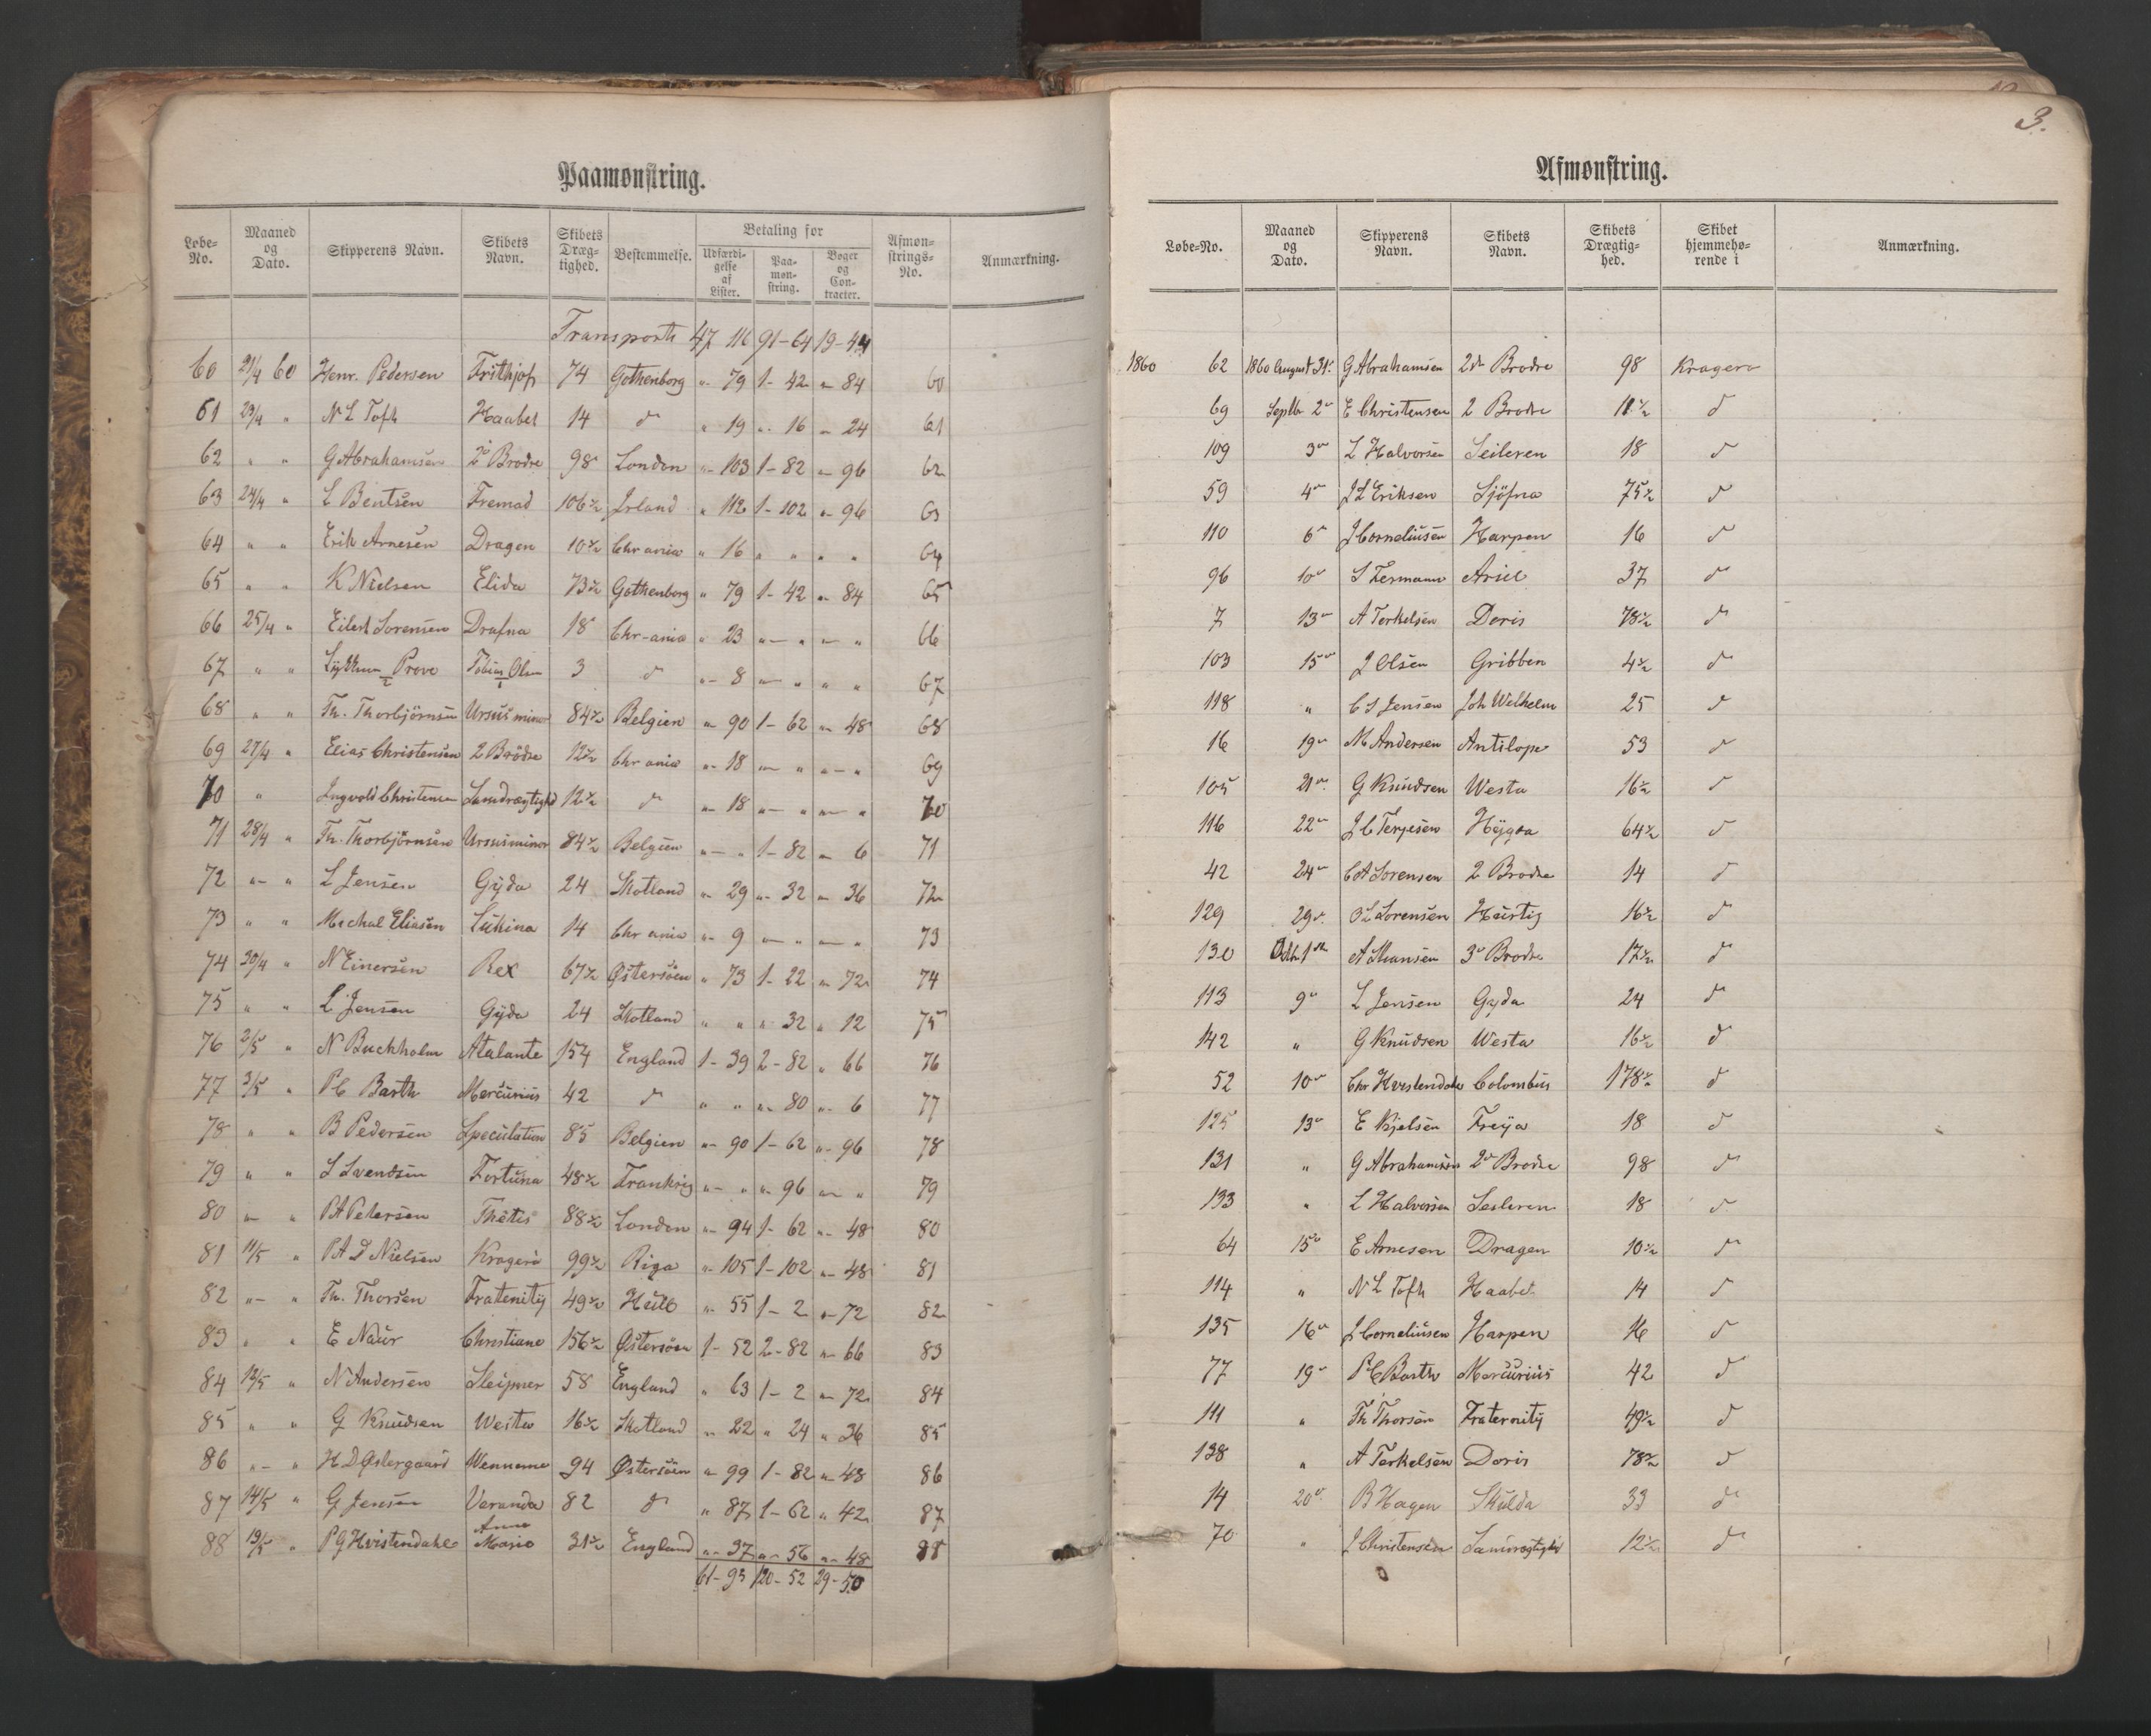 Paamønstring.
Løbe-No. | Maaned og Dato. | Skipperens Navn. | Skibets Navn. | Skibets Dræg-tighed. | Bestemmelse. | Betaling for Udfærdi-gelse af Lister. | Paa-møn-string. | Bøger og Con-tracter. | Afmøn-strings-No. | Anmærkning.
Transport 47 116 91-64 19-44
60 21/4 60 Henr. Pedersen Frithjof 74 Gothenborg " 79 1-42 " 84 60
61 23/4 " N L Toft Haabet 14 do " 19 " 16 " 24 61
62 " " G Abrahamsen 2de Brødre 98 London " 103 1-82 " 96 62
63 24/4 " L Bentsen Fremad 106½ Irland " 112 1-102 " 96 63
64 " " Erik Arnesen Dragen 10½ Chrania " 16 " " " " 64
65 " " K Nielsen Elida 73½ Gothenborg " 79 1-42 " 84 65
66 25/4 " Eilert Sorensen Drafna 18 Chr-ania " 23 " " " " 66
67 " " Prove Tobias Olsen 3 do " 8 " " " " 67
68 " " Th. Thorbjörnsen Ursus minor 84½ Belgien " 90 1-62 " 48 68
69 27/4 " Elias Christensen 2 Brödre 12½ Chrania " 18 " " " " 69
70 " Ingvald Christensen Samdrægtighd 12½ do " 18 " " " " 70
71 28/4 " Th. Thorbjörnsen Ursus minor 84½ Belgien " " 1-82 " 6 71
72 " " L Jensen Gyda 24 Skotland " 29 " 32 " 36 72
73 " " Michal Eliasen 14 Chrania " 9 " " " " 73
74 30/4 " N Einersen Rex 67½ Østersöen " 73 1-22 " 72 74
75 " " L Jensen Gyda 24 Skotland " " " 32 " 12 75
76 2/5 " N Buchholm Atalante 154 England 1-39 2-82 " 66 76
77 3/5 " P C Barth Mercurius 42 do " " " 80 " 6 77
78 " " B Pedersen Speculation 85 Belgien " 90 1-62 " 96 78
79 " " S Svendsen Fortuna 48½ Frankrig " " " 96 " " 79
80 " " P A Petersen Thetis 88½ London " 94 1-62 " 48 80
81 11/5 " P A D Nielsen Kragerö 99½ Riga " 105 1-102 " 48 81
82 " " Th. Thorsen Fratenity 49½ Hull " 55 1-2 " 72 82
83 " " E Naur Christiane 156½ Østersöen 1-52 2-82 " 66 83
84 12/5 " N Andersen Sleipner 58 England " 63 1-2 " 72 84
85 " " G Knudsen Westa 16½ Skotland " 22 " 24 " 36 85
86 " " H D Østergaard 94 Østersöen " 99 1-82 " 48 86
87 14/5 " G Jensen Veranda 82 do " 87 1-62 " 42 87
88 19/5 " P G Hvistendahl Anne Marie 31½ England " 37 " 56 " 48 88
61-93 120-52 29-50
3.
Afmønstring.
Løbe-No. | Maaned og Dato. | Skipperens Navn. | Skibets Navn. | Skibets Drægtig-hed. | Skibet hjemmehø-rende i | Anmærkning.
1860 62 1860 August 31. G Abrahamsen 2de Brodre 98 Kragerø
69 Septb 2 E Christensen 2 Brodre 11½ do
109 3 L Halvorsen Seileren 18 do
59 4 J L Eriksen Sjöfna 75½ do
110 6 J Corneliusen Harpen 16 do
96 10 S Fermann Ariel 37 do
7 13 A Terkelsen Doris 78½ do
103 15 J Olsen Gribben 4½ do
118 " C S Jensen Joh Wilhelm 25 do
16 19 M Andersen Antilope 53 do
105 21 G Knudsen Westa 16½ do
116 22 J C Terjesen Hygea 64½ do
42 24 C A Sorensen 2 Brodre 14 do
129 29 O L Sorensen Hurtig 16½ do
130 Octb. 1 A Hansen 3 Brodre 17½ do
113 9 L Jensen Gyda 24 do
142 " G Knudsen Westa 16½ do
52 10 Chr Hvistendahl Colombus 178½ do
125 13 E Kjelsen Freya 18 do
131 " G Abrahamsen 2de Brodre 98 do
133 " L Halvorsen Seileren 18 do
64 15 E Arnesen Dragen 10½ do
114 " N L Toft Haabet 14 do
135 16 J Corneliusen Harpen 16 do
77 19 P C Barth Mercurius 42 do
111 " Th Thorsen Fraternity 49½ do
138 " A Terkelsen Doris 78½ do
14 20 B Hagen Skulda 33 do
70 " J Christensen Samdrægtighd 12½ do